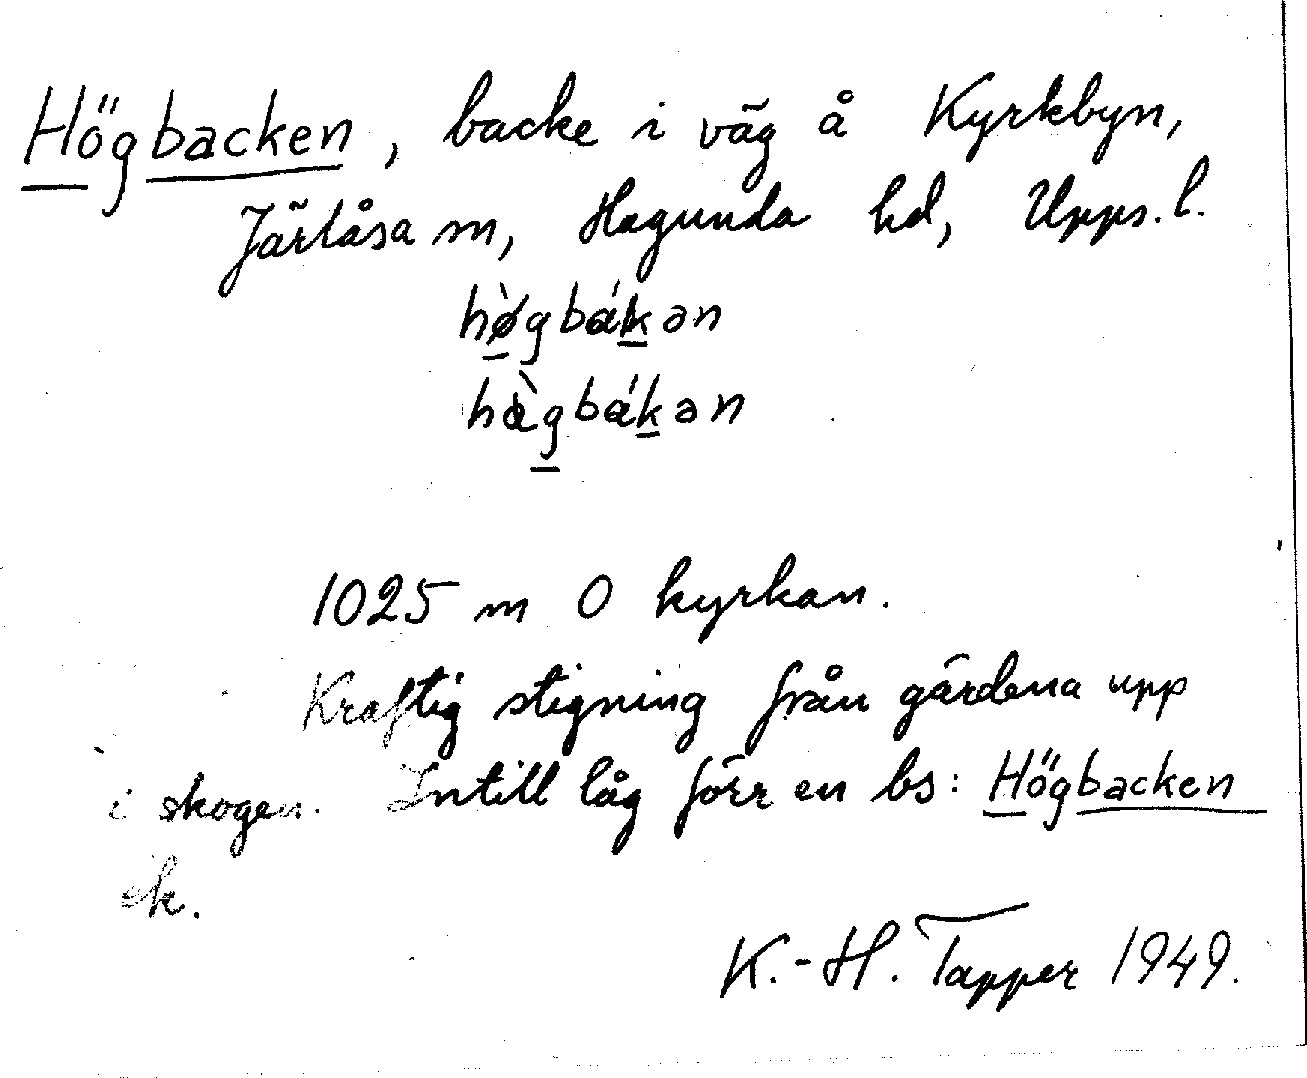 Högbacken, backe i väg å Kyrkbyn,
Järlåsa sn, Hagunda hd, Upps. l.
hø̀gbákən
hàgbákən
1025 m O kyrkan.
Kraftig stigning från gärdena upp
i skogen. Intill låg förr en bs: Högbacken
ek.
K.-H. Tapper 1949.